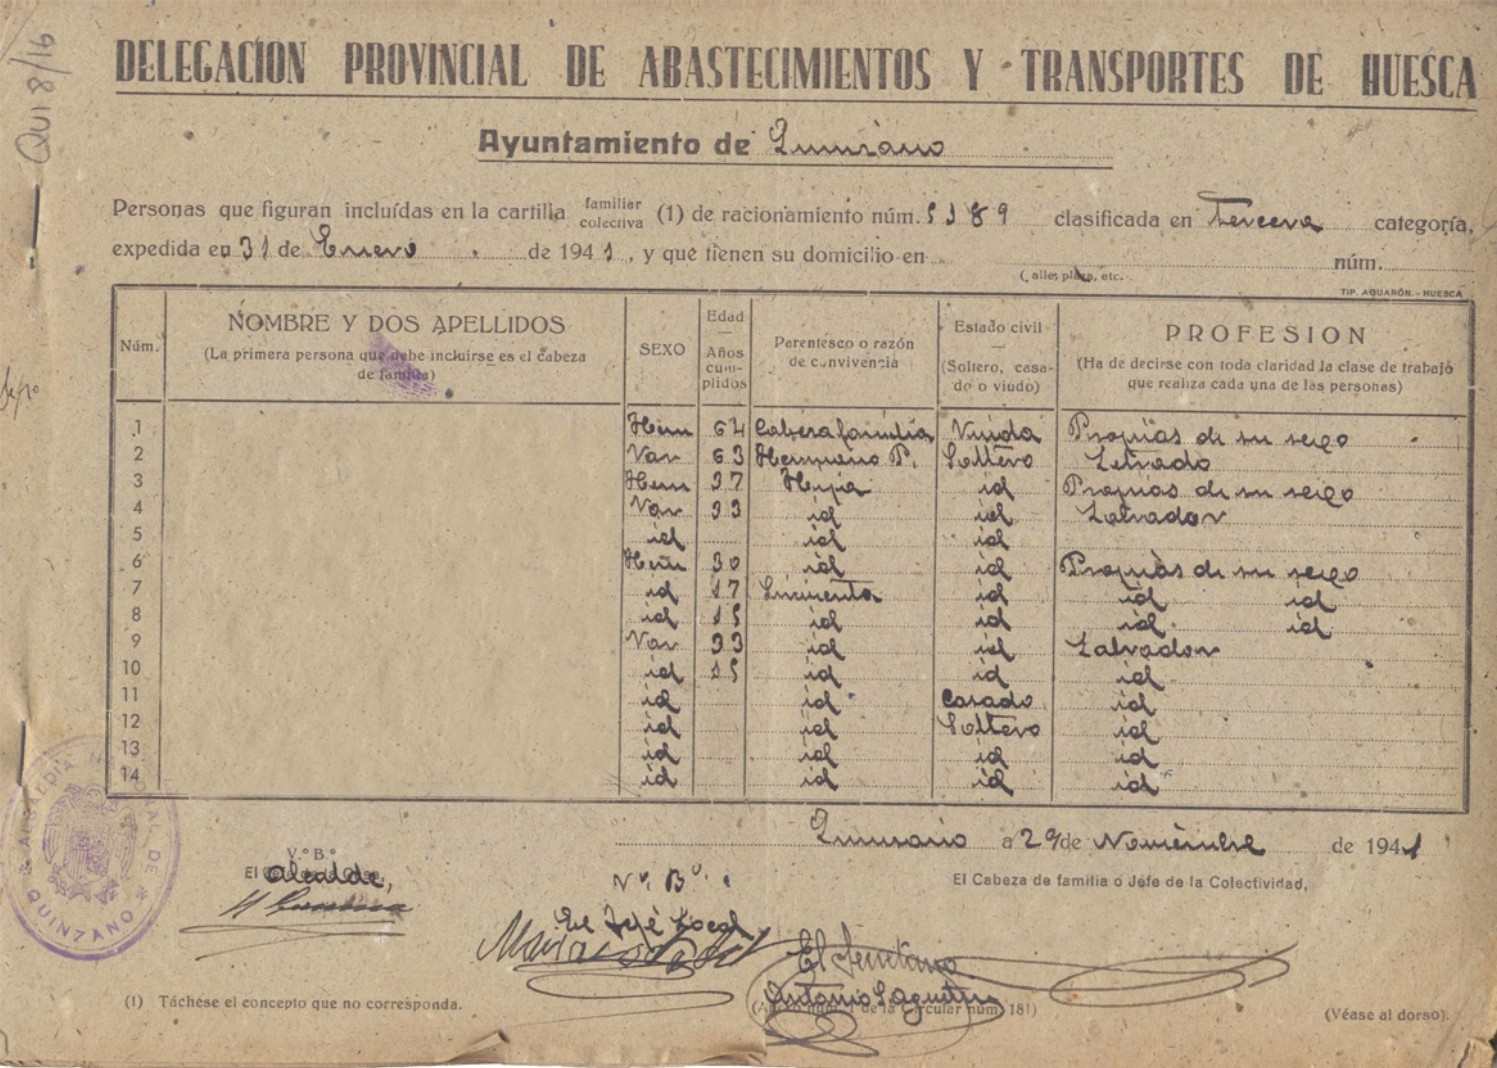 QUI 8/16
DELEGACION PROVINCIAL DE ABASTECIMIENTOS Y TRANSPORTES DE HUESCA
Ayuntamiento de Quinzano
Personas que figuran incluídas en la cartilla familiar colectiva (1) de racionamiento núm. 5189 clasificada en Tercera categoría,
expedida en 31 de Enero de 1941, y que tienen su domicilio en núm.
( alle, plaza, etc.
TIP. AGUARÓN.-HUESCA
Núm. NOMBRE Y DOS APELLIDOS (La primera persona que debe incluirse es el cabeza de familia) SEXO Edad — Años cumplidos Parentesco o razón de convivencia Estado civil — (Soltero, casado o viudo) PROFESION (Ha de decirse con toda claridad la clase de trabajo que realiza cada una de las personas)
1 Hem 64 Cabeza familia Viuda Propias de su sexo
2 Var 63 Hermano P. Soltero
3 Hem 37 Hija id Propias de su sexo
4 Var 33 id id Labrador
5 id id id
6 Hem 30 id id Propias de su sexo
7 id 17 Sirvienta id id id
8 id 15 id id id id
9 Var 33 id id Labrador
10 id 15 id id id
11 id id Casado id
12 id id Soltero id
13 id id id id
14 id id id id
Quinzano a 29 de Noviembre de 1941
V.º B.º
El Alcalde,
Vº. Bº.
El Jefe Local
El Cabeza de familia o Jefe de la Colectividad,
El Secretario
Antonio
ALCALDIA DE QUINZANO
(1) Táchese el concepto que no corresponda.
(Anexo núm. 1 de la Circular núm. 181)
(Véase al dorso).